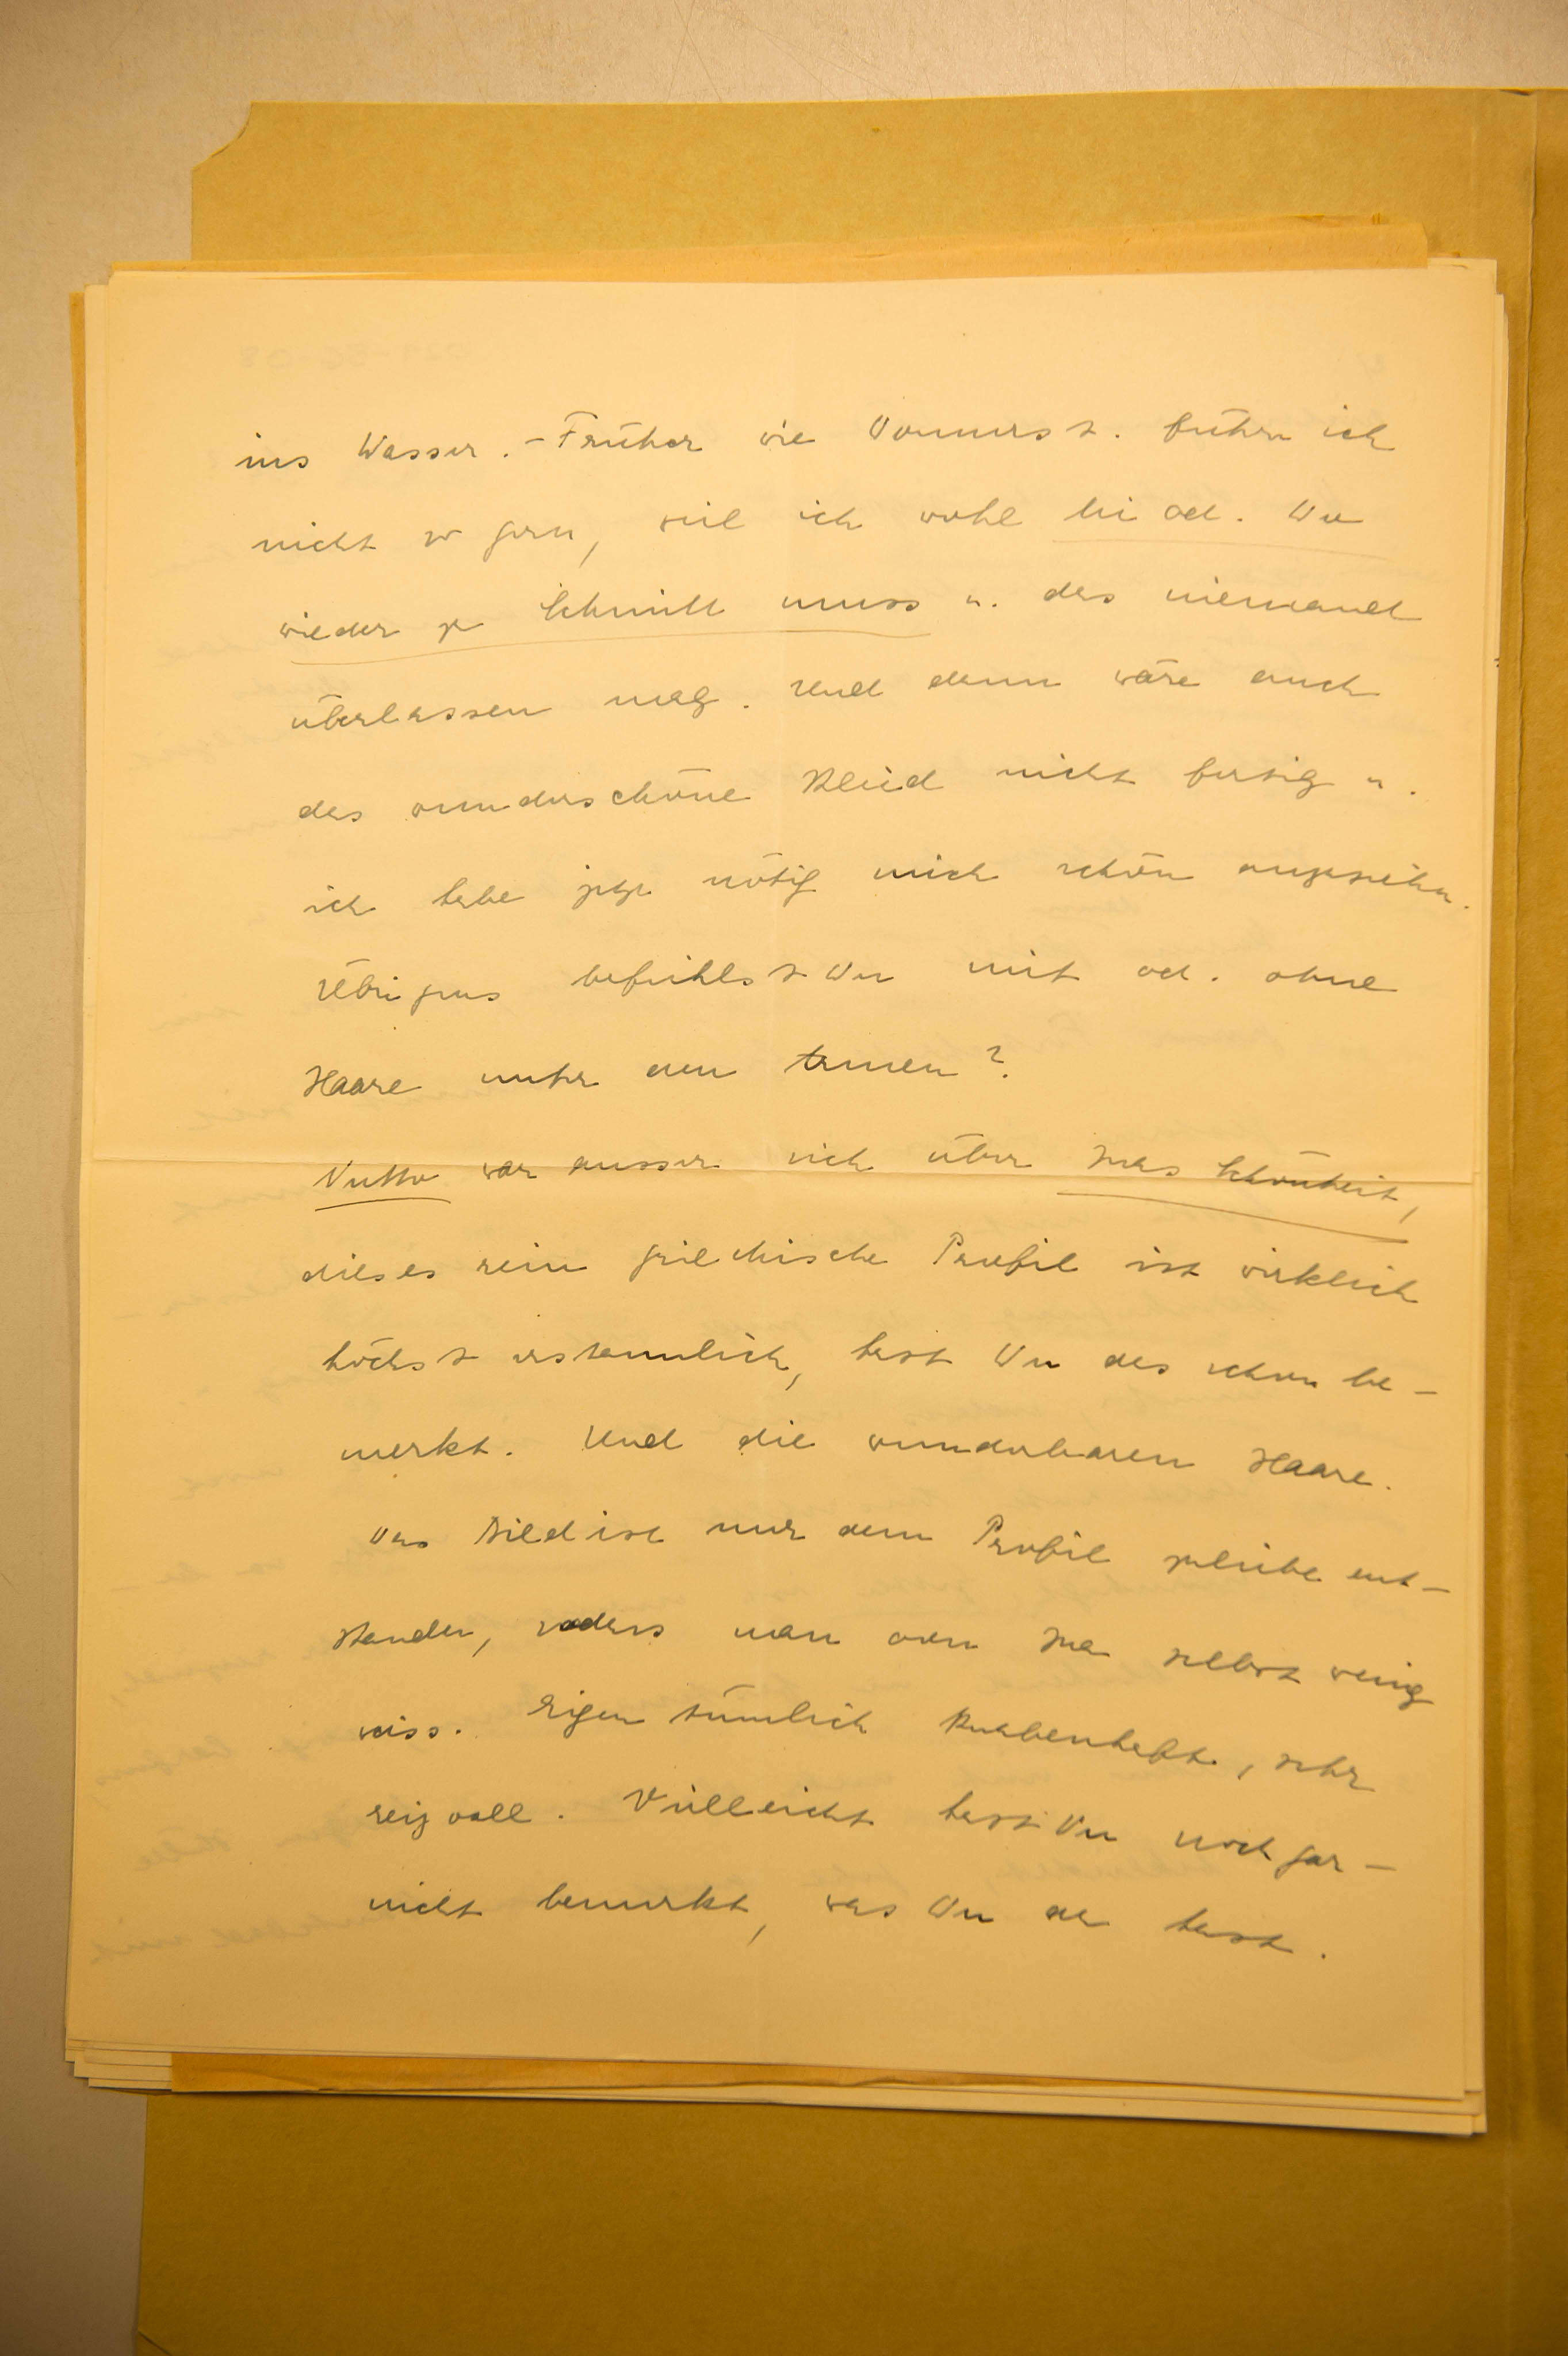 ins Wasser. – Früher wie Donnerst. führe ich
nicht so gern, weil ich wohl Mi od. Do
wieder zu Schmitt muss u. das niemand
überlassen mag. Und dann wäre auch
das wunderschöne Kleid nicht fertig u.
ich habe jetzt nötig mich schön anzuziehn.
Übrigens befiehlst Du mit od. ohne
Haare unter den Armen?
war ausser sich über Inas Schönheit,
dieses rein griechische Profil ist wirklich
höchst erstaunlich, hast Du das schon be-
merkt. Und die wunderbaren Haare.
Das Bild ist nur dem Profil zuliebe ent-
standen, sodass man von Ina selbst wenig
weiss. Eigentümlich knabenhaft, sehr
reizvoll. Vielleicht hast Du noch gar-
nicht bemerkt, was Du da hast.